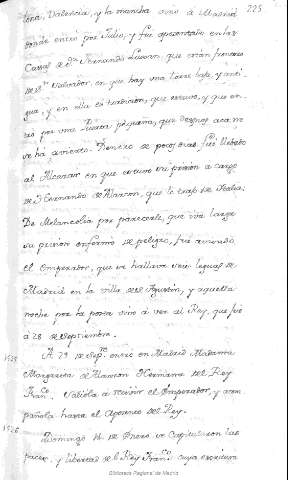 225
lona, Valencia, y la mancha vino a Madrid
donde entró por Julio, y fue aposentado en las
Casas de Dn. Fernando Luxan, que están frontero
de Sn. Salvador, en que hay una torre baja y anti
gua, y en ella es tradicion, que estuvo, y que en
tró por una Puerta pequeña, que despues aca
se ha abierto. Dentro de pocos dias fue llebado
al Alcazar en que estuvo en prision a cargo
de Dn. Hernando de Alarcon, que le trajo de Italia.
De Melancolia por parecerle, que iva larga
su prision enfermó de peligro, fué avisado
el Emperador, que se hallava seis leguas de
Madrid en la villa de Sn. Agustin, y aquella
noche por la posta vino á ver al Rey, que fué
á 28 de Septiembre.
A 29 de Sepe. entró en Madrid Madama
Margarita de Alanson Hermana del Rey
Franco. Salióla á recivir el Emperador, y acom
pañola hasta el Aposento del Rey.
1526
Domingo 14 de Enero se Capitularon las
paces, y libertad del Rey Franco. cuya escritura
Biblioteca Regional de Madrid